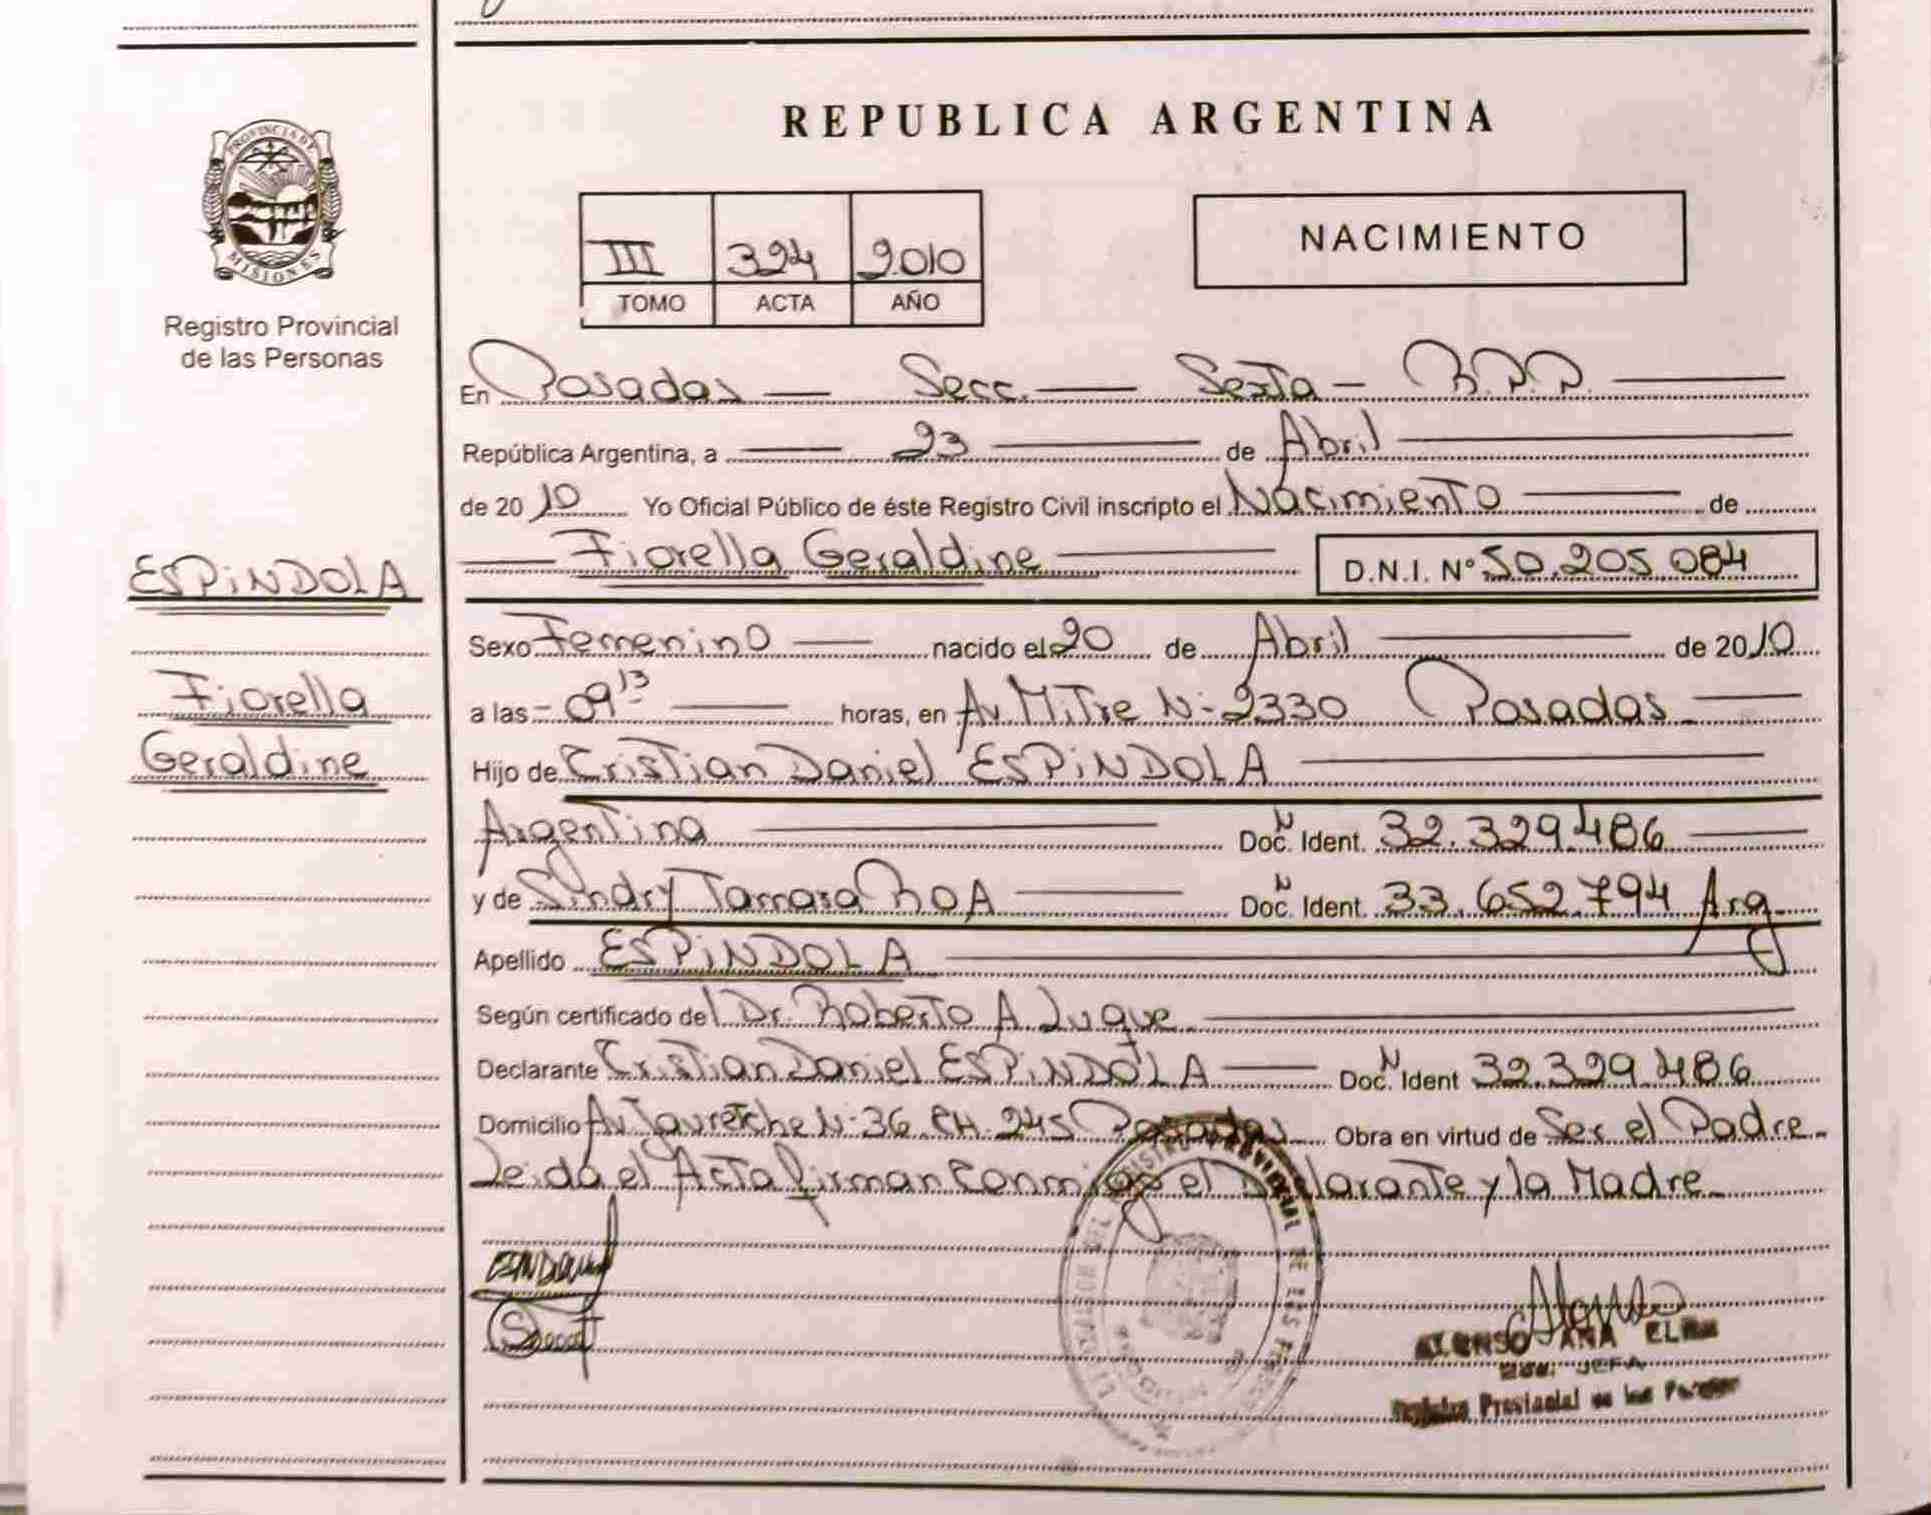 REPUBLICA ARGENTINA
PROVINCIA DE
MISIONES
Registro Provincial
de las Personas
III 324 2010
TOMO ACTA AÑO
NACIMIENTO
En Posadas — Secc. — Sexta — R.P.P.
República Argentina, a — 23 — de Abril
de 2010 Yo Oficial Público de éste Registro Civil inscripto el Nacimiento — de
Fiorella Geraldine D.N.I. Nº 50.205.084
ESPiNDOLA
Fiorella
Geraldine
Sexo Femenino — nacido el 20 de Abril — de 2010
a las 09 13 — horas, en Av. Mitre N- 2330 Posadas
Hijo de Cristian Daniel ESPiNDOLA
Argentina — Doc. N Ident. 32.329.486
y de Sindry Tamara ROA — Doc. N Ident. 33.652.794 Arg.
Apellido ESPiNDOLA
Según certificado del Dr. Roberto A. Luque
Declarante Cristian Daniel ESPiNDOLA — Doc. N Ident 32.329.486
Domicilio Av Jauretche N- 36. CH. 245 Posadas Obra en virtud de Ser el Padre.
Leida el Acta firman Conmigo el Declarante y la Madre
ALONSO ANA
JEFA
Registro Provincial de las Personas